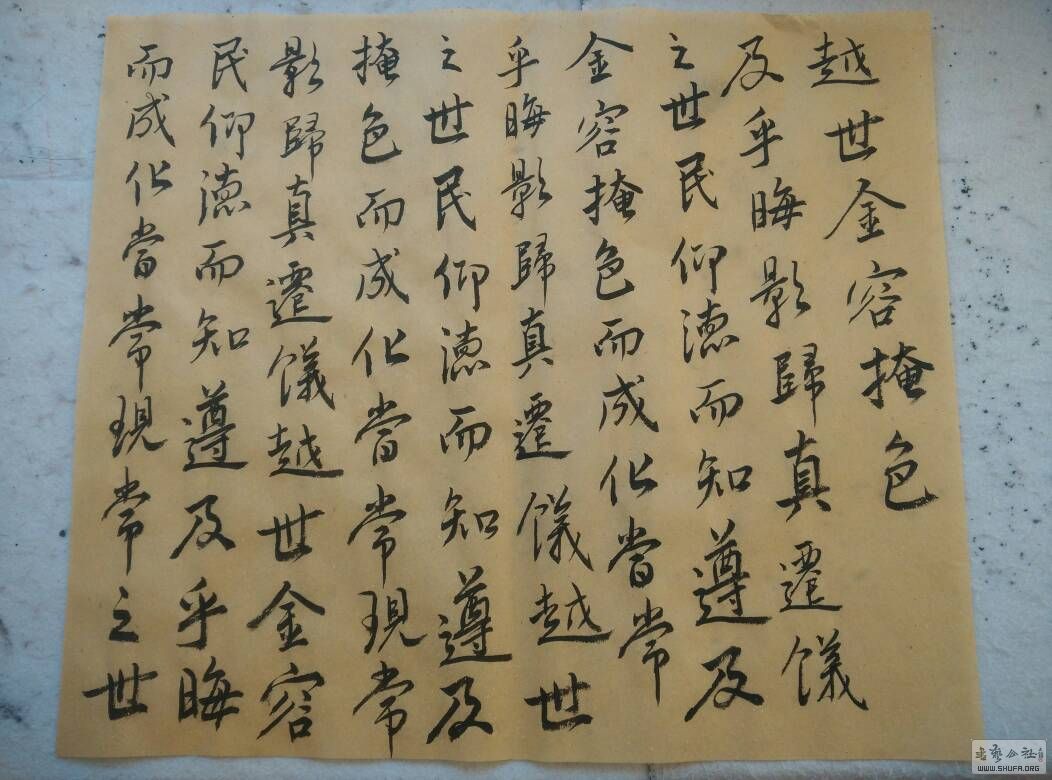 越世金容掩色
及乎晦影歸真遷儀
之世民仰德而知遵及
金容掩色而成化當常
乎晦影歸真遷儀越世
之世民仰德而知遵及
掩色而成化當常現常
影歸真遷儀越世金容
民仰德而知遵及乎晦
而成化當常現常之世
书艺公社
WWW.SHUFA.ORG